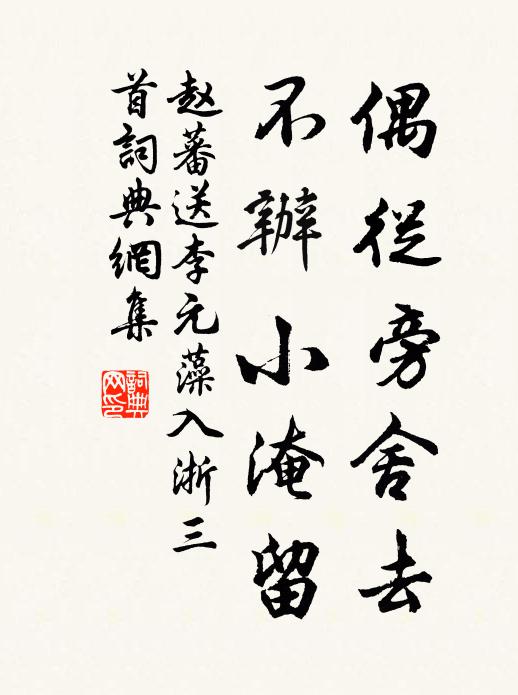 偶從旁舍去
不辦小淹留
赵蕃送李元藻入浙三
首詞典網集
詞典
网印